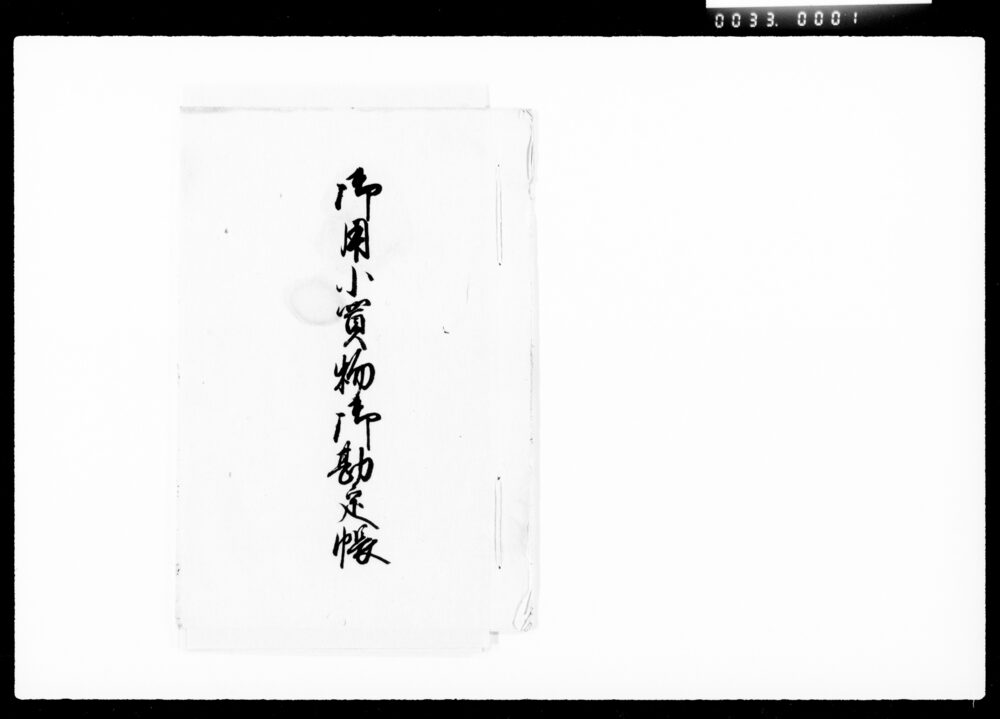 0033. 0001
御用小買物御勘定帳